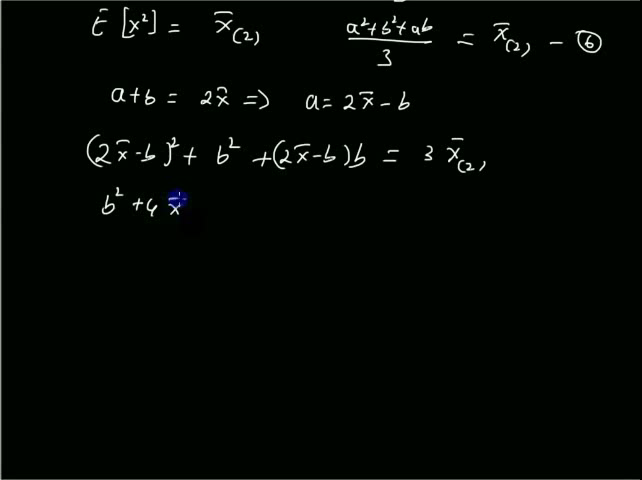 E [x²] = x̄₍₂₎   (a²+b²+ab)/3 = x̄₍₂₎ - ⑥
a+b = 2x̄ => a = 2x̄ - b
(2x̄-b)² + b² + (2x̄-b)b = 3 x̄₍₂₎
b² + 4 x̄